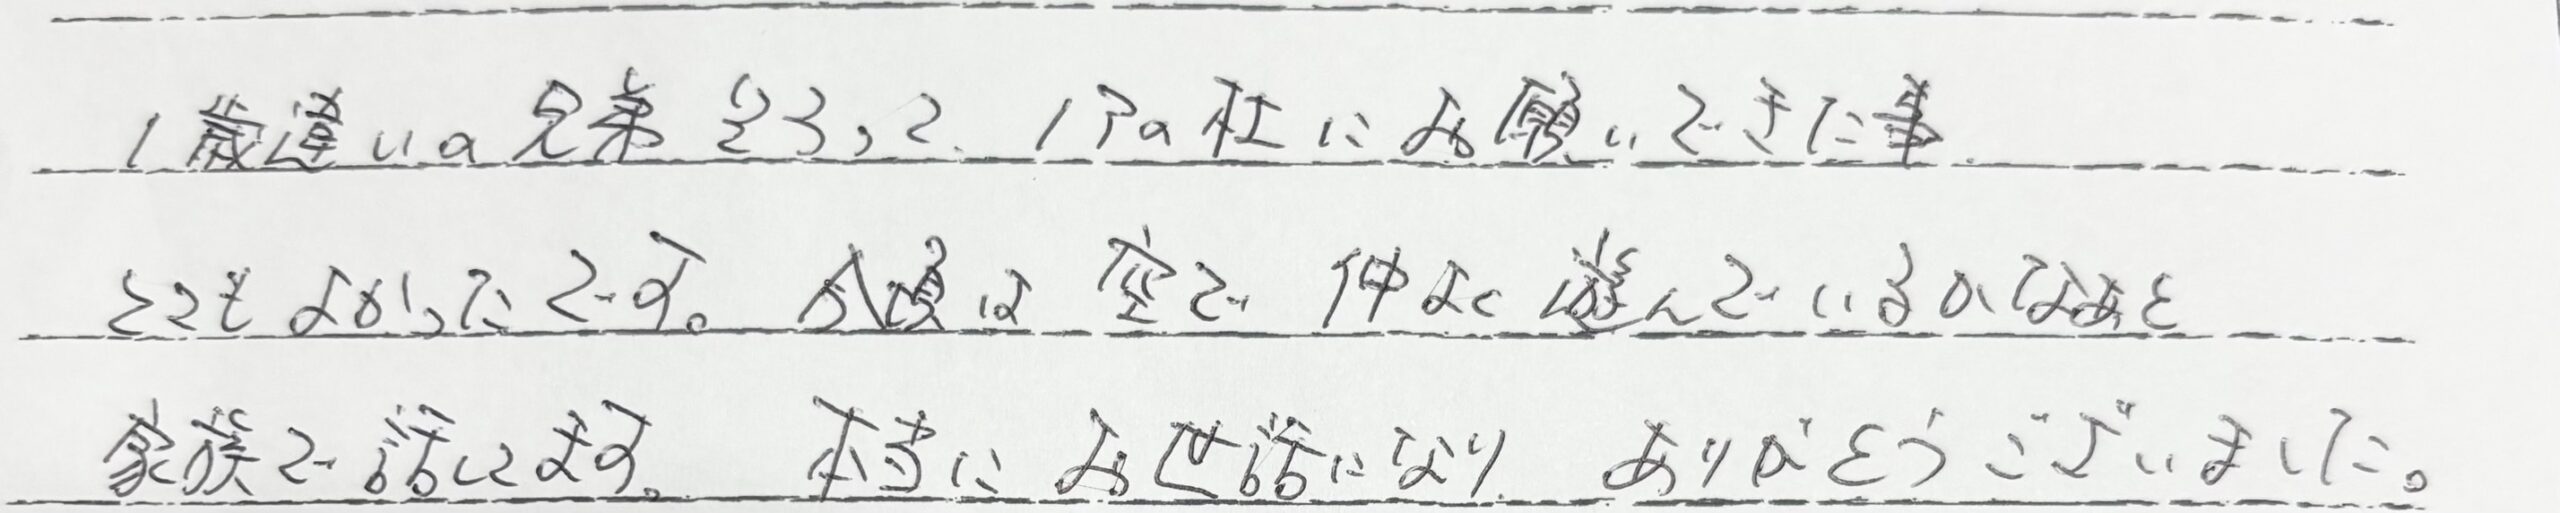 1歳違いの兄弟そろって、Pの社にお願いできた事
とてもよかったです。今頃は空で仲よく遊んでいるかなあと
家族で話してます。本当にお世話になりありがとうございました。